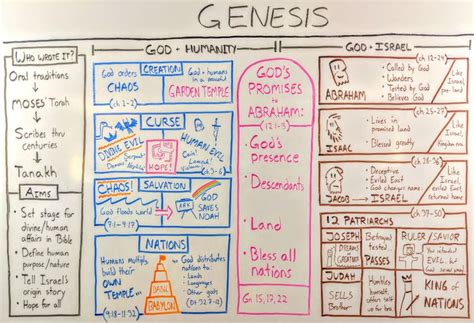 GENESIS
WHO WROTE IT?
Oral traditions
MOSES' Torah
Scribes thru
centuries
Tanakh
AIMS
• Set stage for
divine/human
affairs in Bible
• Define human
purpose/nature
• Tell Israel's
origin story
• Hope for all
GOD + HUMANITY
CREATION
God orders
CHAOS
(ch 1-2)
God + humans
in a peaceful
GARDEN TEMPLE
CURSE
DIVINE EVIL
Serpent
HOPE!
HUMAN EVIL
Cain
Lamech
(ch 3-6)
CHAOS!
SALVATION
God floods world
(7:1-9:17)
ARK
GOD
SAVES
NOAH
NATIONS
Humans multiply,
build their
OWN
TEMPLE...
(9:18-11:32)
BABEL
BABYLON
God distributes
nations to:
- Lands
- Languages
- Other gods
GOD'S
PROMISES
to
ABRAHAM:
(12:1-3)
• God's
presence
• Descendants
• Land
• Bless all
nations
Gn. 15, 17, 22
GOD + ISRAEL
(ch 12-24)
ABRAHAM
• Called by God
• Wanders
• Tested by God
• Believes God
Like
Israel,
(ch 25-27)
ISAAC
• Lives in
promised land
• Blessed greatly
Like
Israel in
kingdom
(ch 28-36)
JACOB → ISRAEL
• Deceptive
• Exiled East
• God changes name
Like
Israel, evil,
exiled,
returned home
12 PATRIARCHS
(ch 37-50)
JOSEPH
DREAMS
GREATNESS
Betrayed,
tested,
PASSES
RULER/SAVIOR
"You intended
EVIL, but
GOD used
JUDAH
SELLS
Brother
Humbles
himself,
offers self
up for bro
KING of
NATIONS